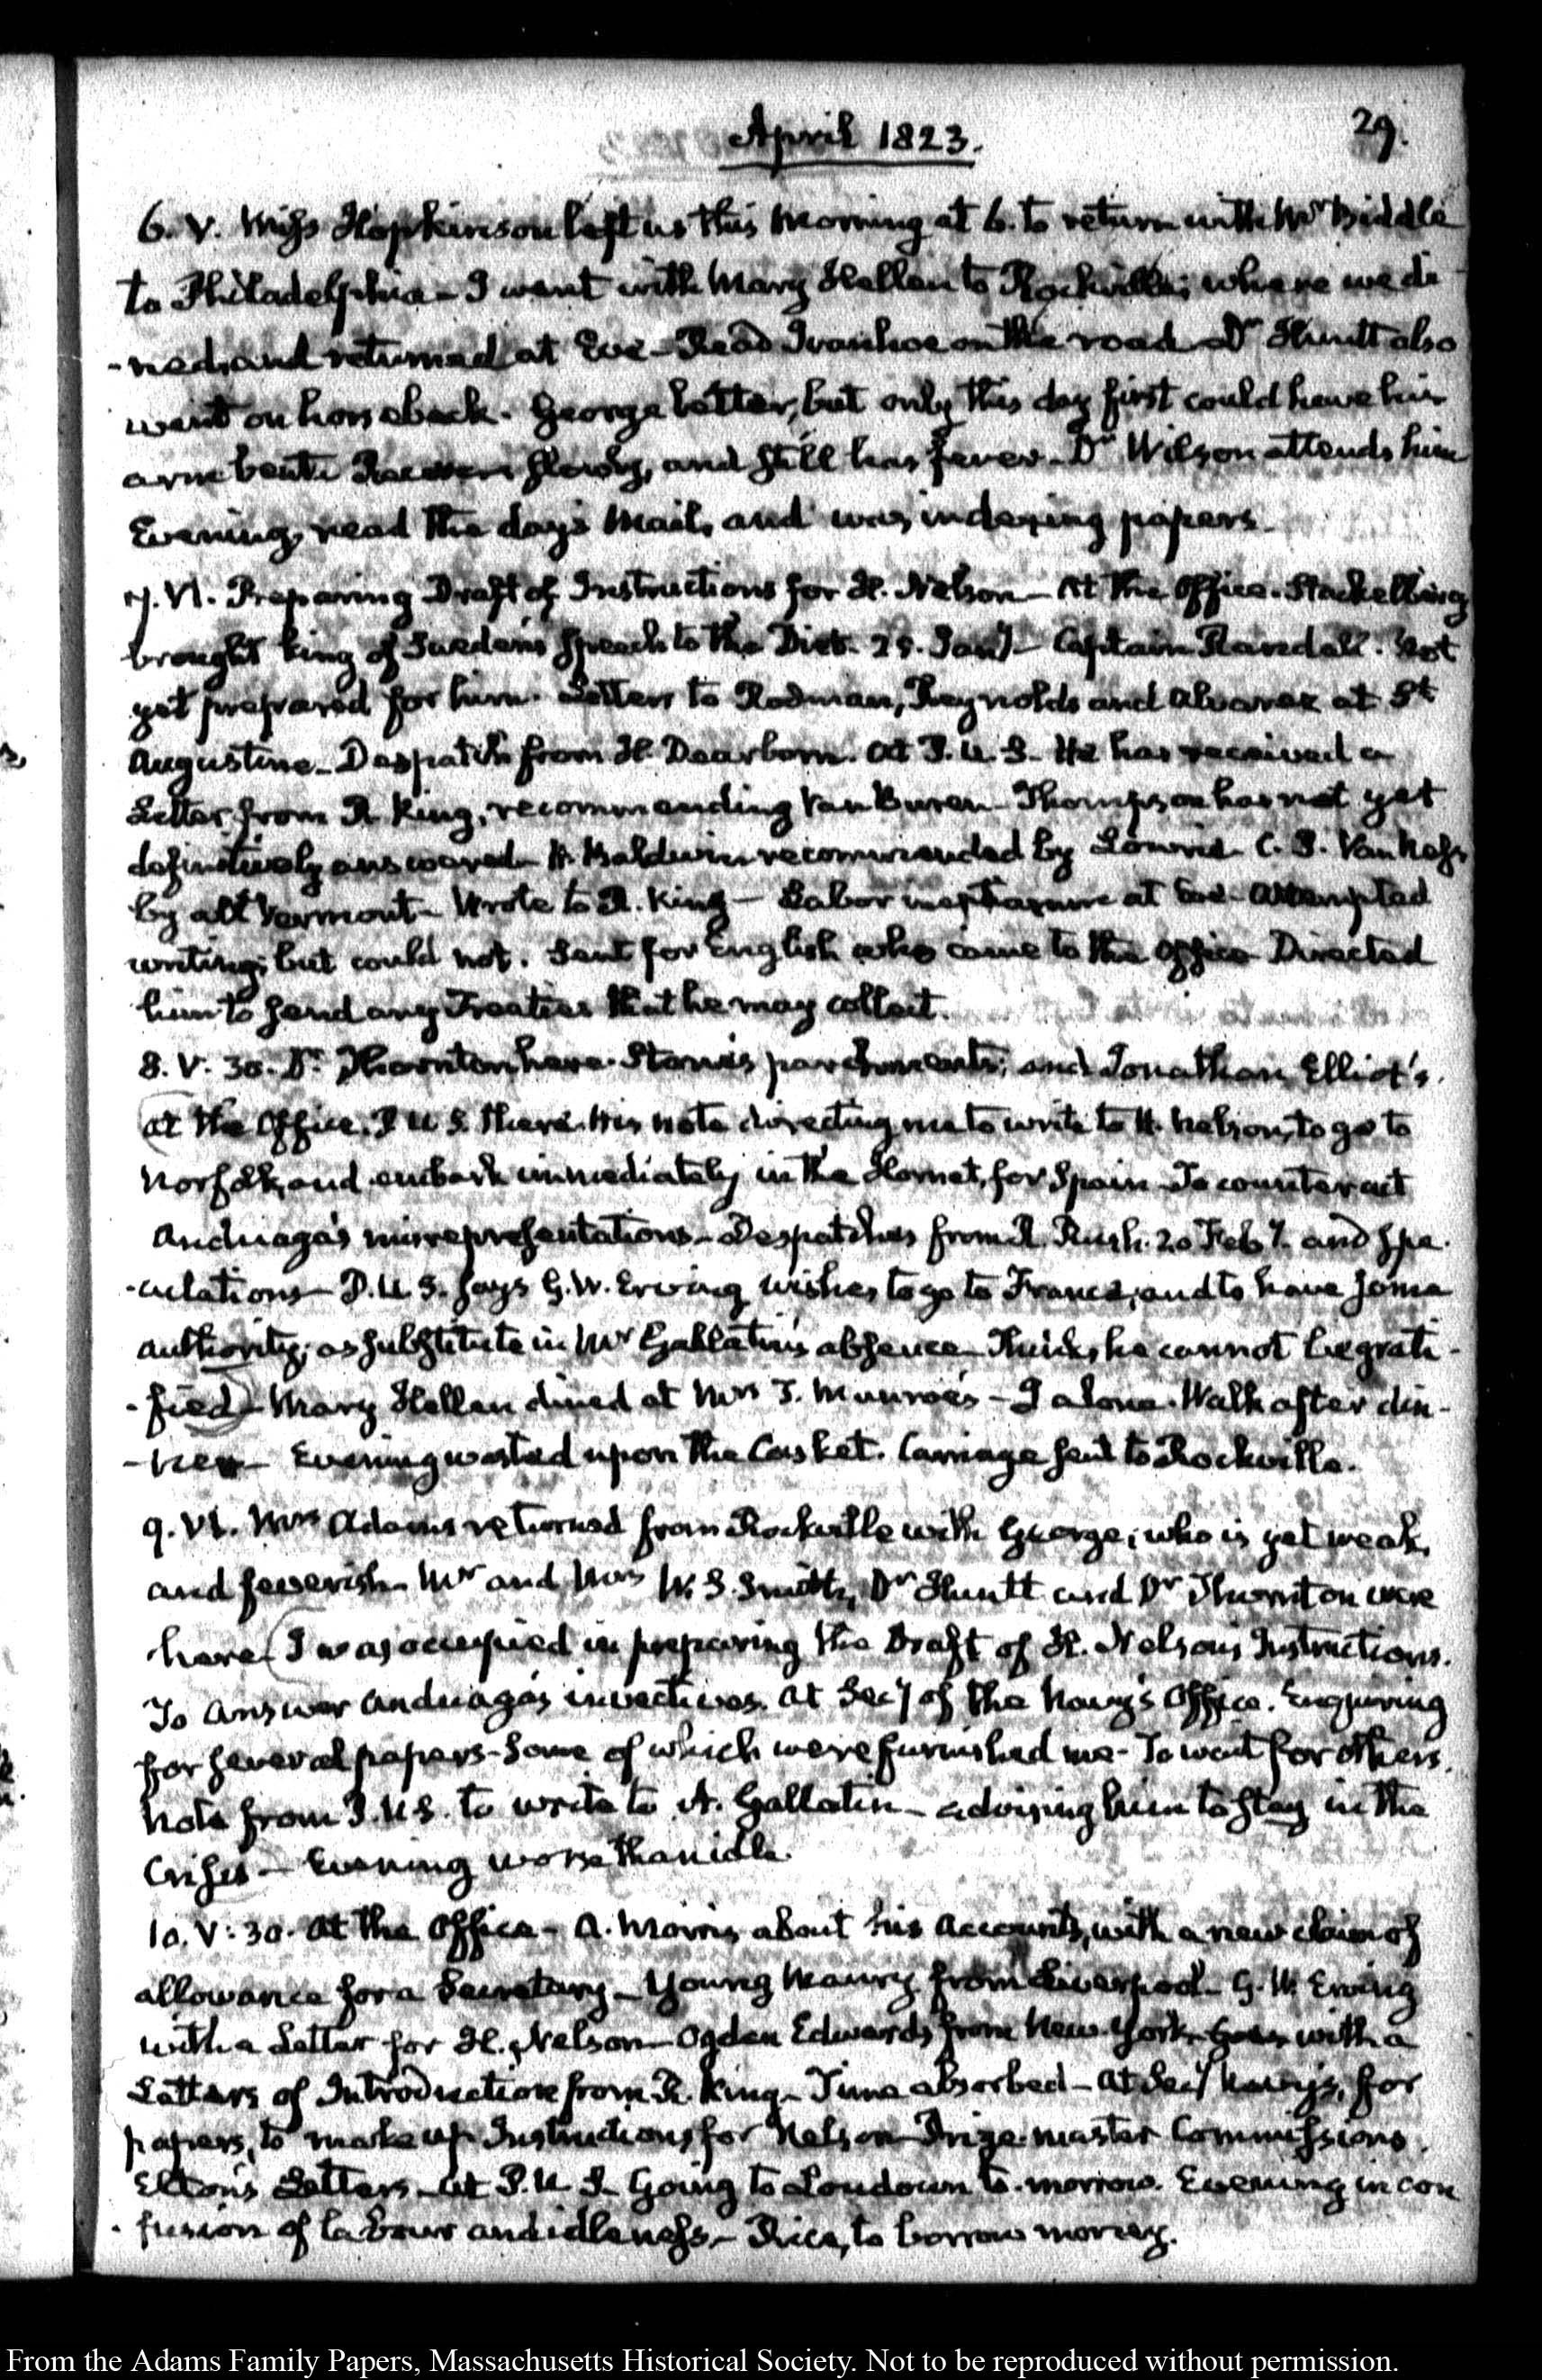 April 1823.
29.
6. V. Miss Hopkinson left us this Morning at 6. to return with Mr Biddle
to Philadelphia - I went with Mary Hellen to Rockville; where we di
-ned, and returned at Eve - Read Ivanhoe on the road - Dr Huntt also
went on horseback. George better, but only this day first could have his
arm bent. slowly, and still has fever. Dr Wilson attends him
Evening, read the day's Mail, and was indexing papers.
7. VI. Preparing Draft of Instructions for H. Nelson - At the Office. Stackelberg
brought King of Sweden's Speech to the Diet. Jany - Captain Randall. Not
yet prepared for him. Letters to Rodman, Reynolds and Alvarez at St
Augustine - Despatch from H. Dearborn. At P. U. S. He has received a
Letter from R. King, recommending Van Buren - Thompson has not yet
definitively answered - H. Baldwin recommended by Lowrie - C. P. Van Ness
by all Vermont - Wrote to R. King - Labor at Eve - Attempted
writing; but could not. Sent for English who came to the Office - Directed
him to send any Treaties that he may collect.
8. V. 30. Dr Thornton here. Stone's parchments; and Jonathan Elliot's.
At the Office. P U S. there. His note directing me to write to H. Nelson, to go to
Norfolk, and embark immediately in the Hornet, for Spain - To counteract
Anduaga's misrepresentations - Despatches from R. Rush. 20 Feby. and spe-
-culations - P. U. S. says G. W. Erving wishes to go to France; and to have some
authority; as substitute in Mr Gallatin's absence - Thinks he cannot be grati-
-fied - Mary Hellen dined at Mrs T. Munroe's - I alone. Walk after din-
-ner - Evening wasted upon the Casket. Carriage sent to Rockville.
9. VI. Mrs Adams returned from Rockville with George; who is yet weak,
and feverish. Mr and Mrs W. S. Smith, Dr Huntt and Dr Thornton were
here - I was occupied in preparing the Draft of H. Nelson's Instructions.
To answer Anduaga's invectives. At Secy of the Navy's Office. Enquiring
for several papers - Some of which were furnished me - To wait for others.
Note from P. U. S. to write to A. Gallatin - advising him to stay in the
Crisis - Evening worse than idle.
10. V: 30. At the Office - A. Morris about his Accounts, with a new claim of
allowance for a Secretary - Young Maury from Liverpool - G. W. Erving
with a Letter for H. Nelson - Ogden Edwards from New-York with a
Letters of Introduction from R. King - Time absorbed - At Secy Navy's, for
papers, to make up Instructions for Nelson - Prize-master Commissions.
Elton's Letters - At P. U. S. Going to Loudoun to-morrow. Evening in con
-fusion of labour and idleness - Rice, to borrow money.
From the Adams Family Papers, Massachusetts Historical Society. Not to be reproduced without permission.